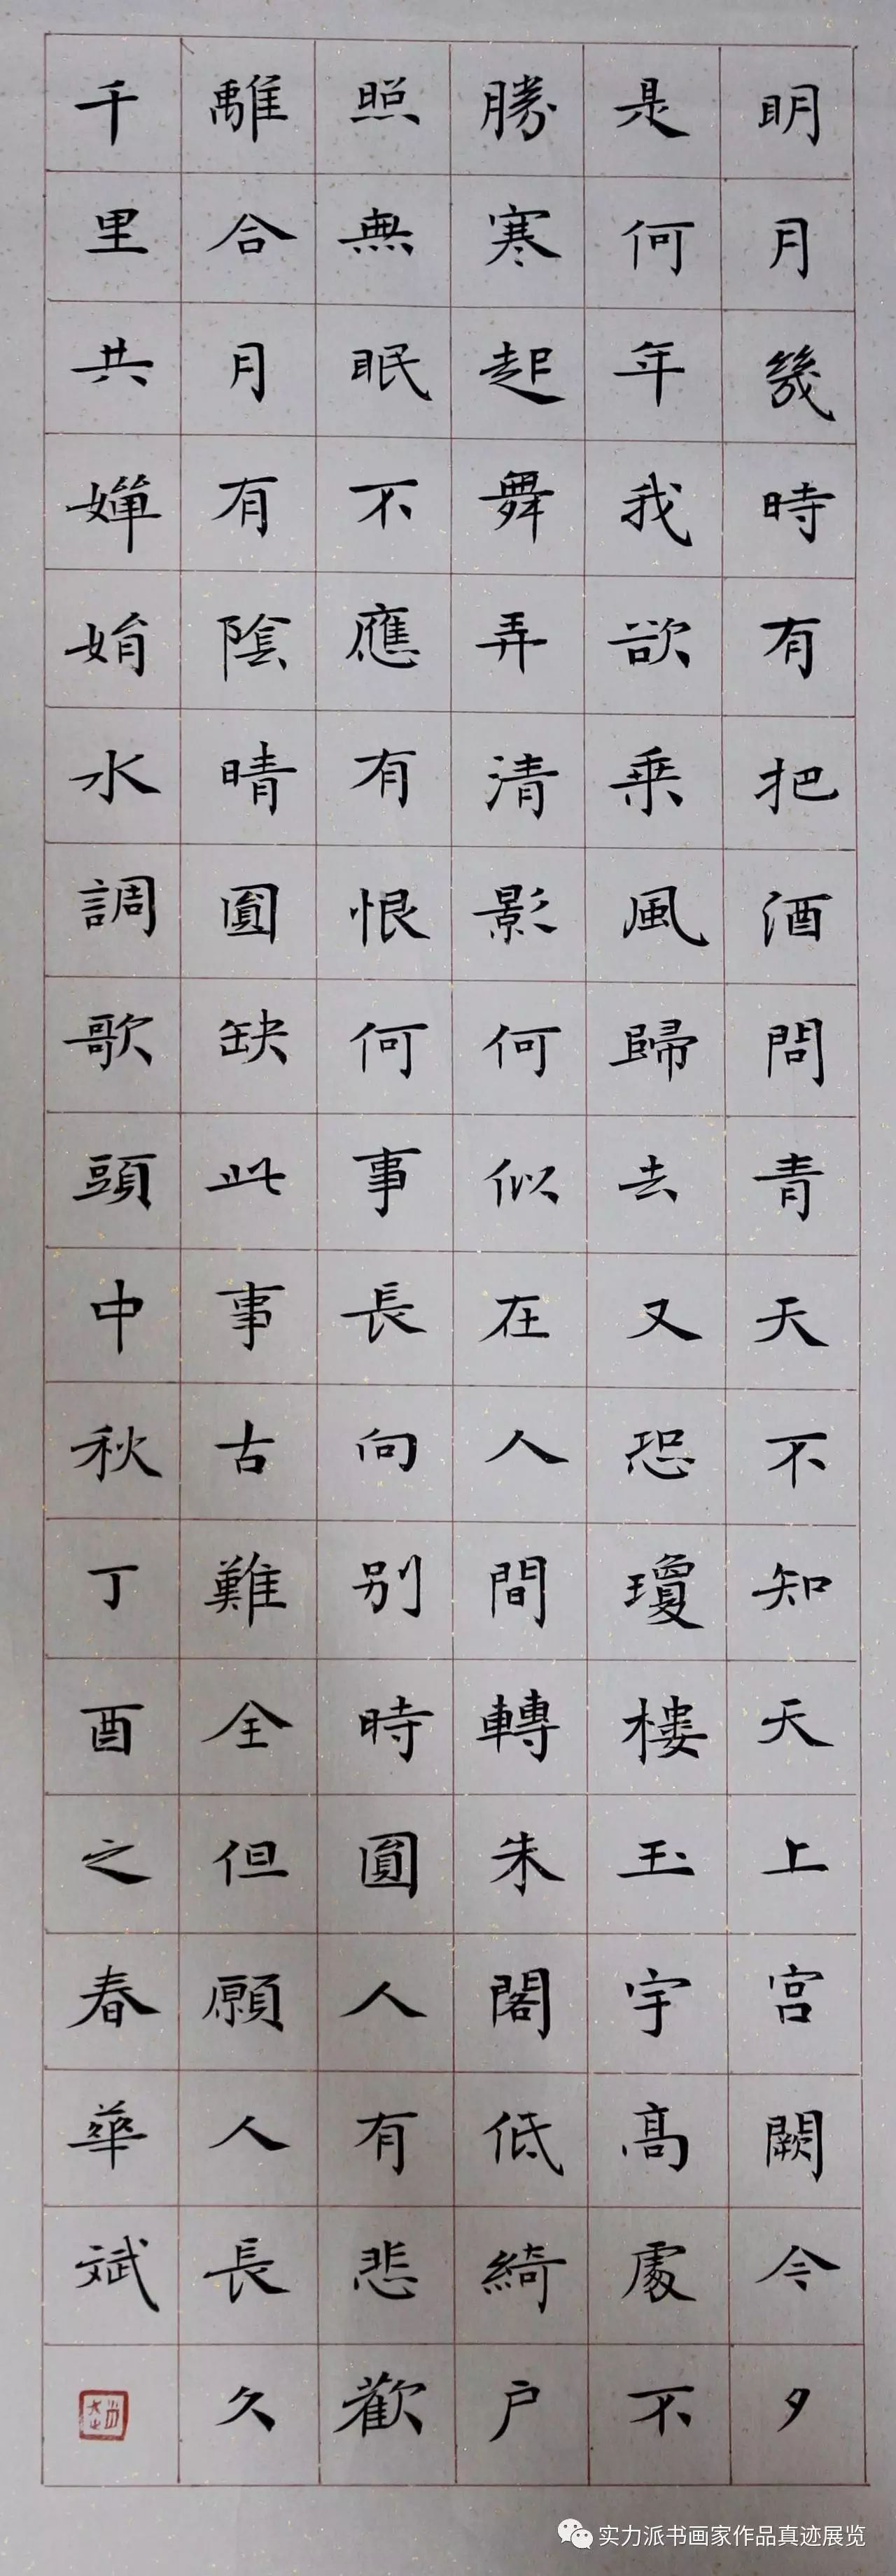 明月幾時有把酒問青天不知天上宮闕今夕
是何年我欲乗風歸去又恐瓊樓玉宇髙處不
勝寒起舞弄清影何似在人間轉朱閣低綺户
照無眠不應有恨何事長向别時圓人有悲歡
離合月有陰晴圓缺此事古難全但願人長久
千里共嬋娟水調歌頭中秋丁酉之春華斌
实力派书画家作品真迹展览